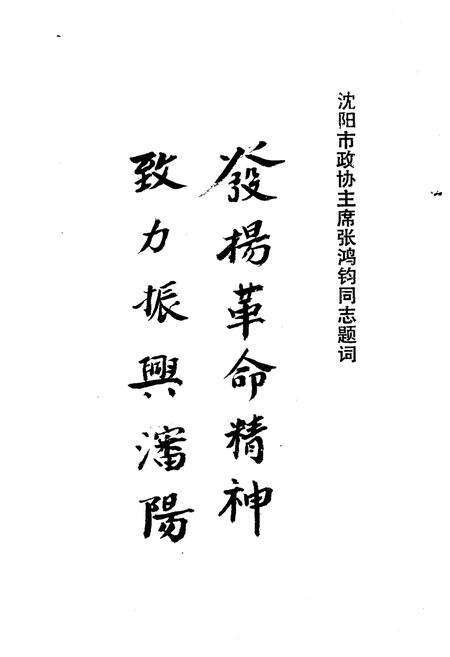 沈阳市政协主席张鸿钧同志题词
發揚革命精神
致力振興瀋陽